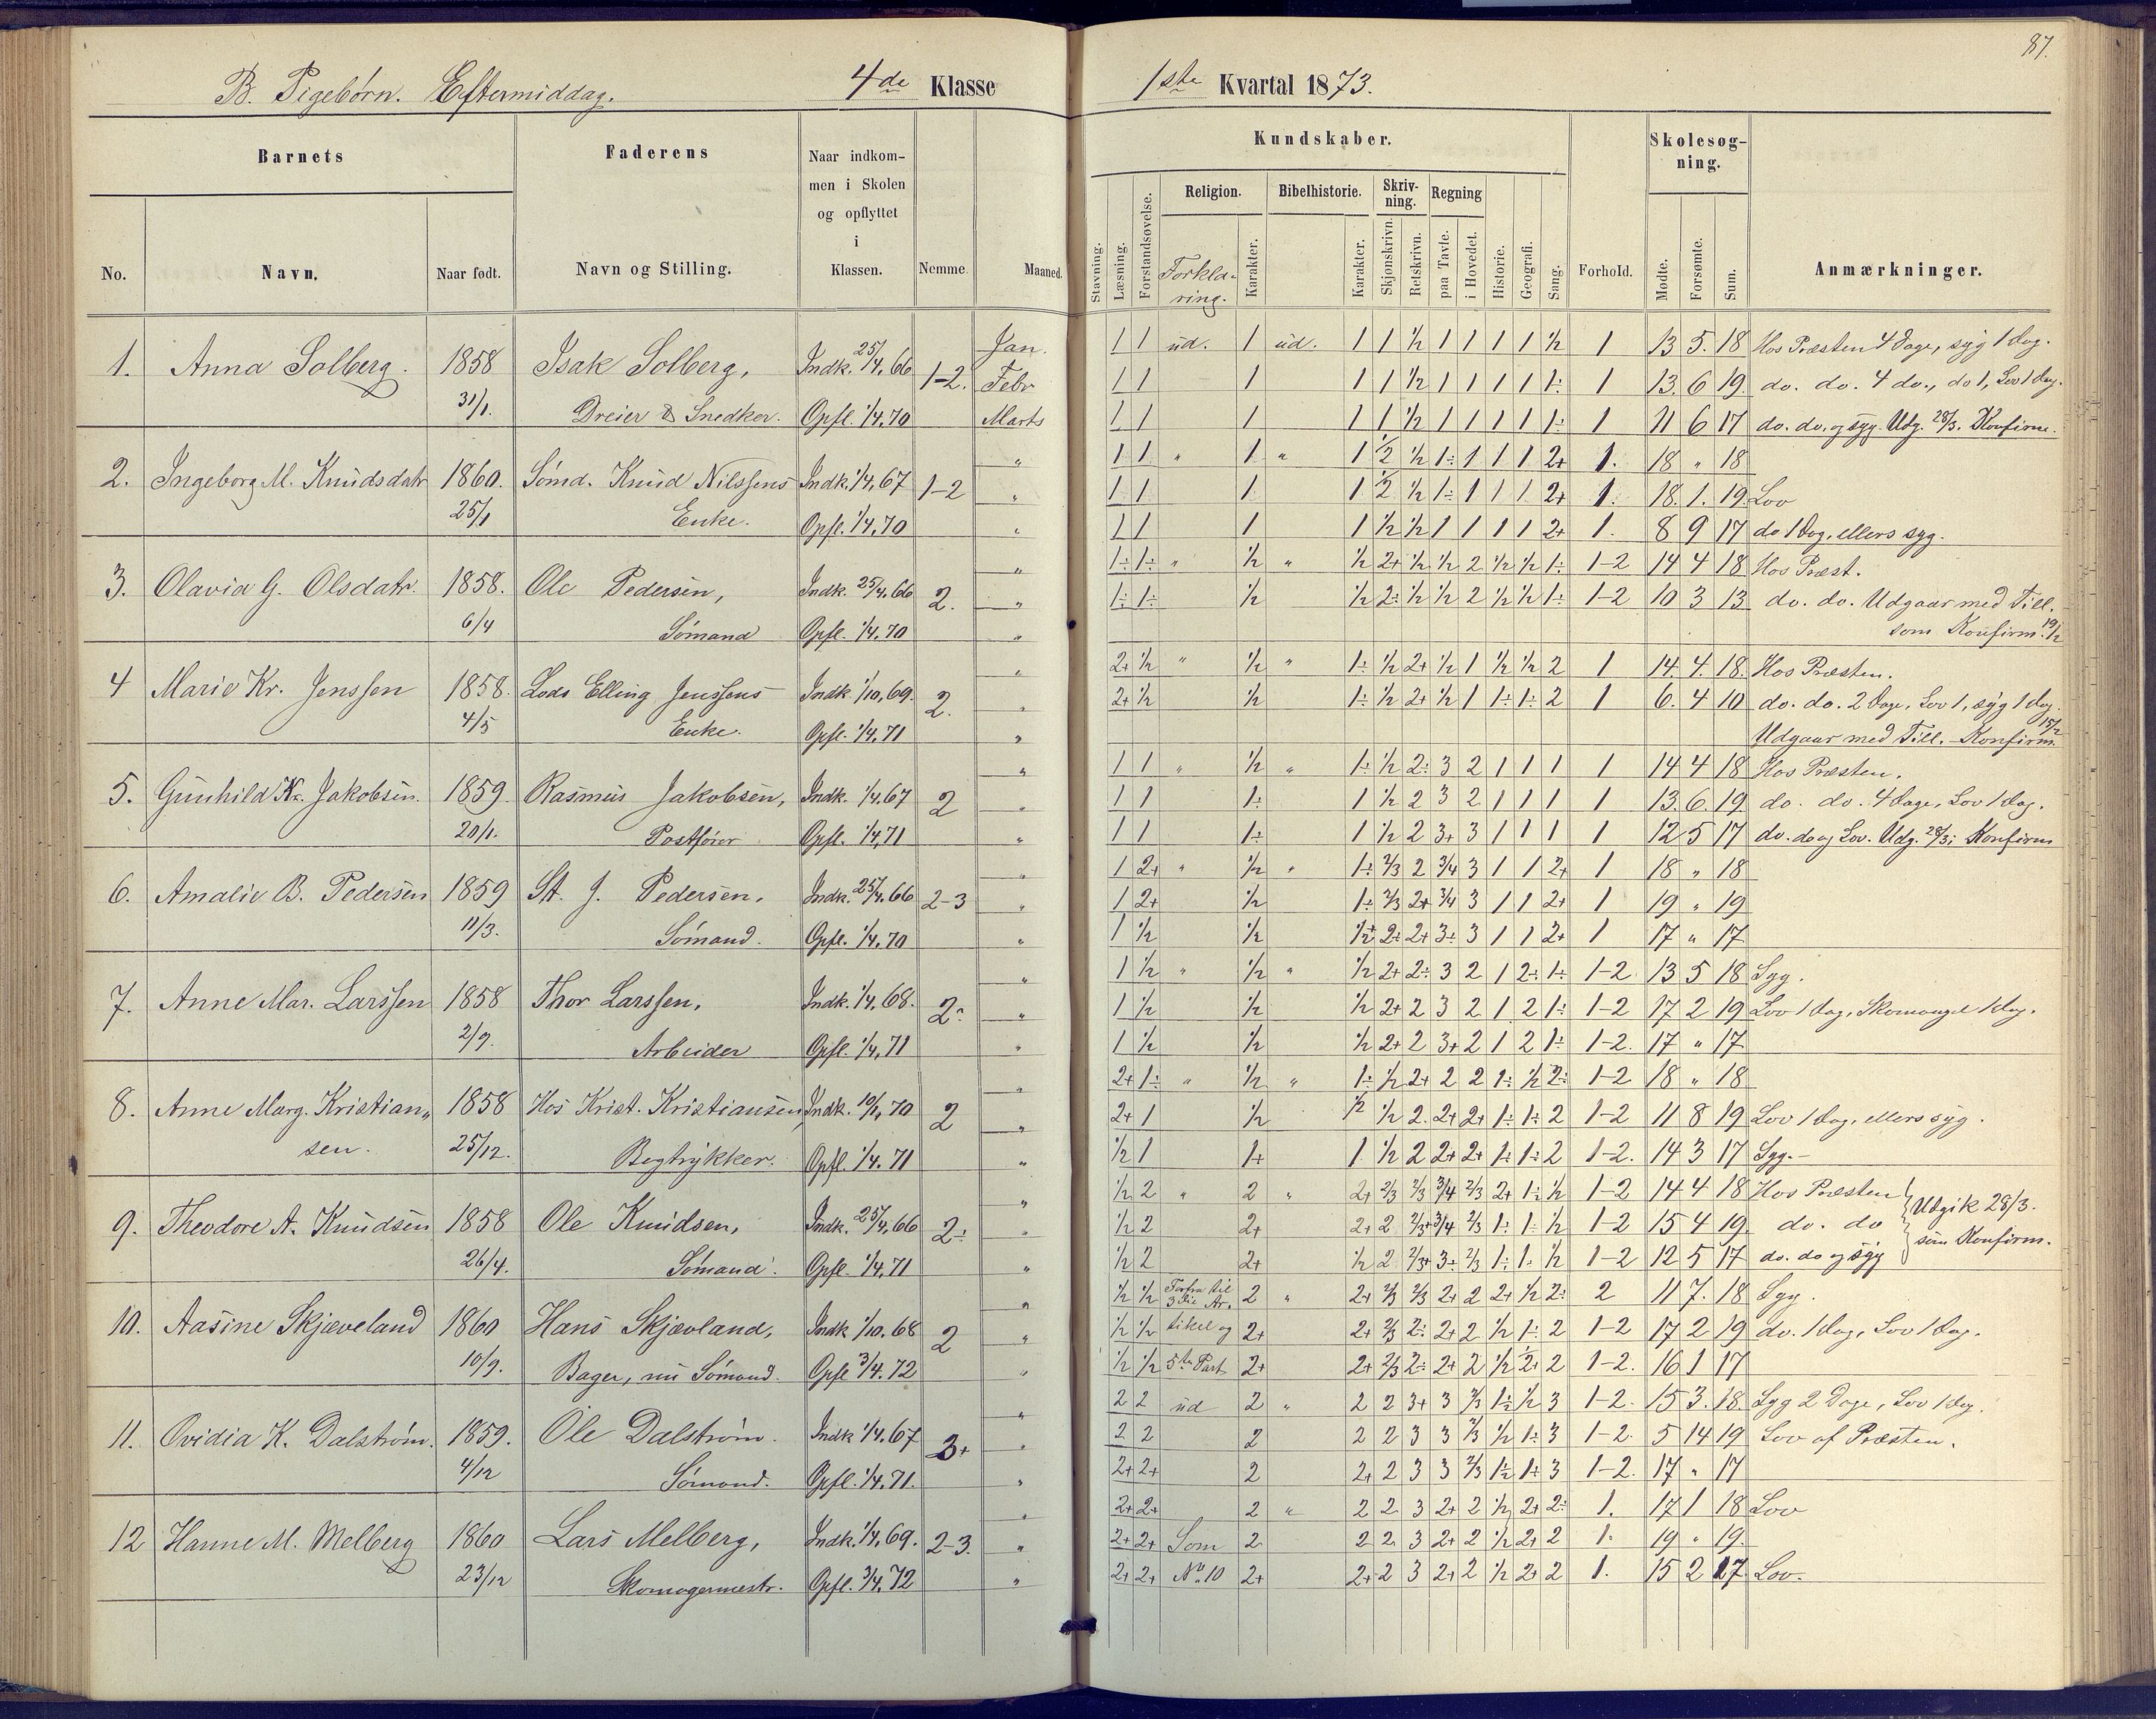 87.
B. Pigebørn. Eftermiddag. 4de Klasse 1ste Kvartal 1873.
Barnets Faderens Naar indkom-men i Skolen og opflyttet i Klassen. Nemme. Maaned. Kundskaber. Forhold. Skolesøg-ning. Anmærkninger.
No. Navn. Naar født. Navn og Stilling.
Stavning. Læsning. Forstandsøvelse. Religion. Forkla-ring. Karakter. Bibelhistorie. Karakter. Skriv-ning. Skjønskrivn. Retskrivn. Regning paa Tavle. i Hovedet. Historie. Geografi. Sang. Mødte. Forsømte. Sum.
1. Anna Solberg. 1858 Isak Solberg, Indk. 25/4, 66 1-2. Jan. 1 1 ud. 1 ud. 1 1 ½ 1 1 1 1 ½ 1 13 5. 18 Hos Præsten 4 Dage, syg 1 Dag.
Febr 1 1 1 1 1 ½ 1 1 1 1 1÷ 1 13. 6 19. do. do. 4 do., do 1, Lov 1 Dag.
31/1. Dreier & Snedker. Opfl. 1/4.70 Marts 1 1 1 1 1 ½ 1 1 1 1 1÷ 1 11 6 17 do. do. og syg. Udg. 28/3. Konfirm.
2. Ingeborg M. Knudsdatr 1860. Sømd. Knud Nilssens Indk. 1/4, 67 1-2 " 1 1 " 1 " 1 ½ ½ 1÷ 1 1 1 2+ 1. 18 " 18
" 1 1 1 1 ½ ½ 1÷ 1 1 1 2+ 1. 18. 1. 19. Lov
25/1 Enke. Opfl. 1/4.70 " 1 1 1 1 ½ ½ 1 1 1 1 2+ 1. 8 9 17 do 1 Dag, ellers syg.
3. Olavia G. Olsdatr. 1858. Ole Pedersen, Indk. 25/4.66 2. " 1÷ 1÷ " ½ " ½ 2+ ½ ½ 2 ½ ½ 1÷ 1-2 14 4 18 Hos Præst.
" 1÷ 1÷ ½ ½ 2÷ ½ ½ 2 ½ ½ 1÷ 1-2 10 3 13 do. do. Udgaar med Till.
6/4 Sømand Opfl. 1/4.70 " som Konfirm. 19/2
4 Marie Kr. Jenssen 1858. Lods Elling Jenssens Indk. 1/10, 69. 2. " 2+ ½ " ½ " 1÷ ½ 2+ ½ 1 ½ ½ 2 1 14. 4. 18. Hos Præsten.
" 2+ ½ ½ 1÷ ½ 2+ ½ 1 1÷ 1÷ 2 1 6. 4 10 do. do. 2 Dage, Lov 1, syg 1 Dag.
4/5 Enke. Opfl. 1/4.71 " Udgaar med Till. - Konfirm. 15/2
5. Gunhild Kr. Jakobsen. 1859. Rasmus Jakobsen, Indk. 1/4.67 2 " 1 1 " ½ " 1÷ ½ 2÷ 3 2 1 1 1 1 14 4 18 Hos Præsten.
" 1 1 1÷ 1 ½ 2 3 2 1 1 1 1 13. 6. 19 do. do. 4 Dage, Lov 1 Dag.
20/1. Postfører Opfl. 1/4,71 " 1 1 1÷ 1 ½ 2 3+ 3 1 1 1 1 12 5 17 do. do og Lov. Udg. 28/3 Konfirm
6. Amalie B. Pedersen 1859 St. J. Pedersen, Indk. 25/4.66 2-3 " 1 2+ " ½ " 1÷ 2/3 2 3/4 3 1 1 2+ 1 18 " 18
" 1 2+ ½ 1÷ 2/3 2+ 3/4 3 1 1 2+ 1 19 " 19
11/3. Sømand. Opfl. 1/4.70 " 1 ½ ½ ½+ 2÷ 2+ 3÷ 3 1 1 2+ 1 17 " 17
7. Anne Mar. Larssen 1858 Thor Larssen, Indk. 1/4.68. 2÷ " 1 ½ " ½ " ½ 2+ 2÷ 3 2 1 2÷ 1÷ 1-2 13 5 18 Syg.
" 1 ½ ½ ½ 2+ 2 3 2 1 2 1÷ 1-2 17 2 19 Lov 1 Dag, Skomangel 1 Dag.
2/9. Arbeider Opfl. 1/4,71 " 1 ½ ½ ½ 2+ 2 3+ 2 1 2 1÷ 1-2. 17 " 17
8. Anne Marg. Kristian„ 1858 Hos Krist. Kristiansen, Indk. 10/1, 70 2 " 2+ 1÷ " ½ " 1÷ ½ 2+ 2 2 1÷ ½ 2÷ 1-2 18 " 18
" 2+ 1 ½ ½ ½ 2. 2+ 2+ 1÷ 1÷ 2 1-2 11 8 19 Lov 1 Dag, ellers syg.
sen. 25/12. Bogtrykker. Opfl. 1/4.71 " ½ 1 1+ 1 ½ 2 2+ 2+ 1÷ 1÷ 2 1-2. 14 3 17 Syg. -
9. Theodore A. Knudsen 1858 Ole Knudsen, Indk. 25/4,66 2÷ " ½ 2 " 2 " 2+ 2/3 2/3 3/4 2/3 2+ 1÷ ½ 1-2 14 4 18 Hos Præsten } Udgik 28/3.
" ½ 2 2+ 2+ 2 2/3+ 3/4 2/3 1÷ 1÷ ½ 1-2 15 4 19. do. do } som Konfirm.
26/4. Sømand. Opfl. 1/4,71 " ½ 2 2+ ½ 2 2/3+ 3÷ 2/3 1÷ 1÷ ½ 1-2 12 5 17 do. do og syg
10. Aasine Skjæveland 1860 Hans Skjævland, Indk 1/10.68 2 " ½ ½ Forfra til 3die Ar. 2 " 2+ 2/3 2/3 2+ 2 2+ ½ 2÷ 2 11 7. 18 Syg.
" ½ ½ tikel og 2+ 2+ 2/3 2÷ 2+ 2 ½ 1÷ 2 1-2 17 2 19 do. 1 Dag, Lov 1 Dag.
10/9. Bager, nu Sømand. Opfl 3/4.72 " ½ ½ 5te Part 2+ 2+ 2/3 2÷ 2+ 2 ½ 2+ 2 1-2. 16 1 17
11. Ovidia K. Dalstrøm. 1859. Ole Dalstrøm. Indk 1/4.67 3+ " 2 2 ud 2 " 2 2 3+ 3 2/3 1÷ ½ 3 1-2. 15 3. 18. Syg 2 Dage, Lov 1 Dag.
" 2 2 2 2 2 3 3 2/3 ½ 1÷ 3 1-2. 5 14 19 Lov af Præsten.
4/12 Sømand. Opfl. 1/4.71. " 2+ 2+ 2 2+ 2 3 3 2/3 1÷ 1÷ 3 1-2. 17 " 17
12 Hanne M. Melberg 1860 Lars Melberg, Indk. 1/4,69. 2-3. " 2+ 2+ 2 " 2 2 3 2+ 2 ½ 2+ 2÷ 1. 17 1 18 Lov
" 2+ 2+ Som 2 2 2 3 2+ 2 ½ 2+ 2 1. 19 " 19.
23/12 Skomagermestr. Opfl. 3/4,72 " 2+ 2+ No. 10 2+ 2+ 2 3 2+ 2 ½ 2+ 2 1. 15 2 17. Lov.